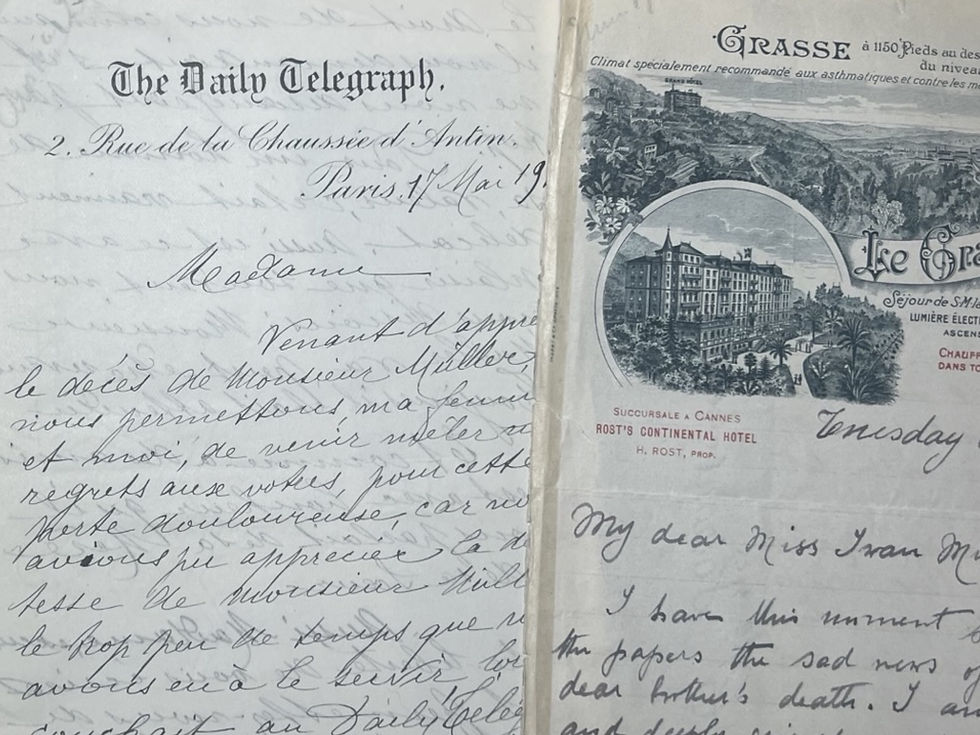 The Daily Telegraph.
2. Rue de la Chaussée d'Antin.
Paris. 17 Mai 19
Madame
Venant d'appre
le decès de Monsieur Müller,
nous permettons, ma femm
et moi, de venir mêler n
regrets aux votres, pour cette
perte douloureuse, car no
avions pu apprécier la d
tesse de Monsieur Müll
le trop peu de temps que n
avons eu à le servir, lor
couchait au Daily Teleg
GRASSE à 1150 Pieds au des
du nivea
Climat spécialement recommandé aux asthmatiques et contre les m
GRAND HÔTEL
Le Gra
Séjour de S.M. la
LUMIÈRE ÉLECT
ASCEN
CHAUFF
DANS TO
SUCCURSALE A CANNES
ROST'S CONTINENTAL HOTEL
H. ROST, PROP.
Tuesday
My dear Miss Iwan Mü
I have this moment
the papers the sad news of
dear brother's death. I am
and deeply